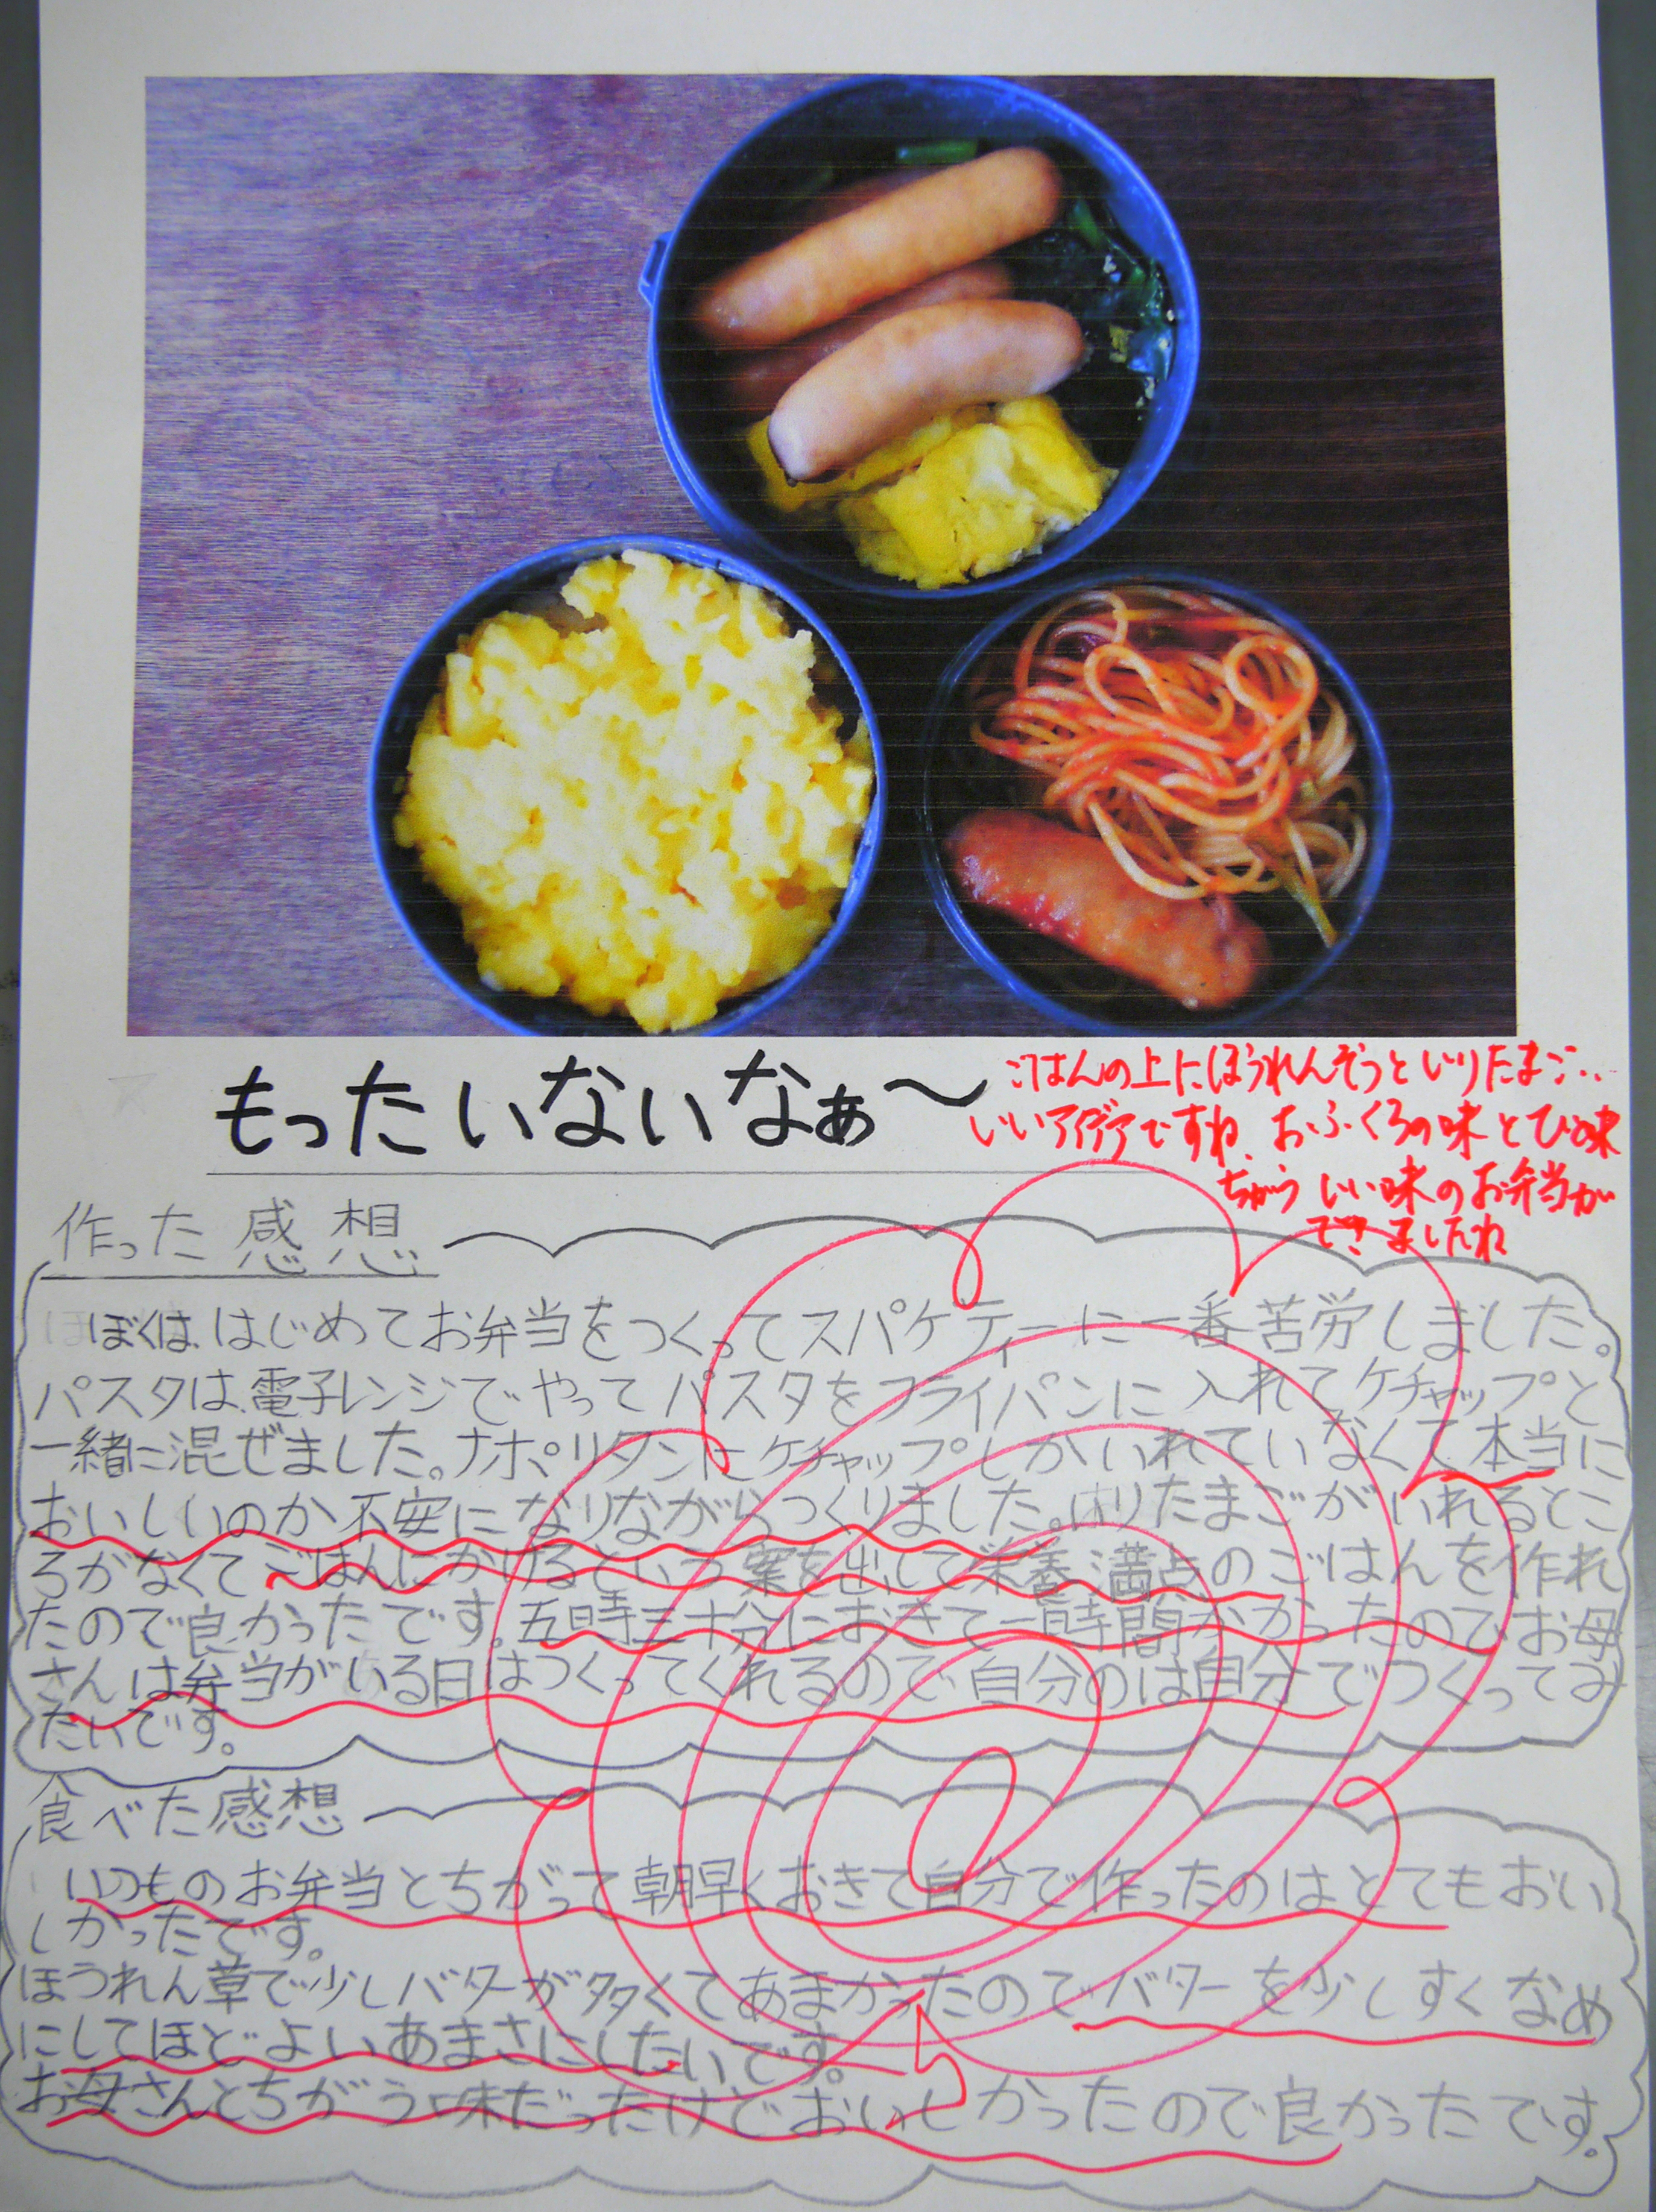 もったいないなぁ〜
ごはんの上にほうれんそうといりたまご..
いいアイデアですね。おふくろの味とひと味
ちがう いい味のお弁当が
できましたね
作った感想
ぼくは、はじめてお弁当をつくってスパゲティーに一番苦労しました。
パスタは、電子レンジでやってパスタをフライパンに入れてケチャップと
一緒に混ぜました。ナポリタンにケチャップしかいれていなくて本当に
おいしいのか不安になりながらつくりました。いりたまごがいれるとこ
ろがなくてごはんにかけるという案を出して栄養満点のごはんを作れ
たので良かったです。五時三十分におきて一時間かかったのでお母
さんは弁当がいる日はつくってくれるので自分のは自分でつくってみ
たいです。
食べた感想
いつものお弁当とちがって朝早くおきて自分で作ったのはとてもおい
しかったです。
ほうれん草で少しバターが多くてあまかったのでバターを少しすくなめ
にしてほどよいあまさにしたいです。
お母さんとちがう味だったけどおいしかったので良かったです。